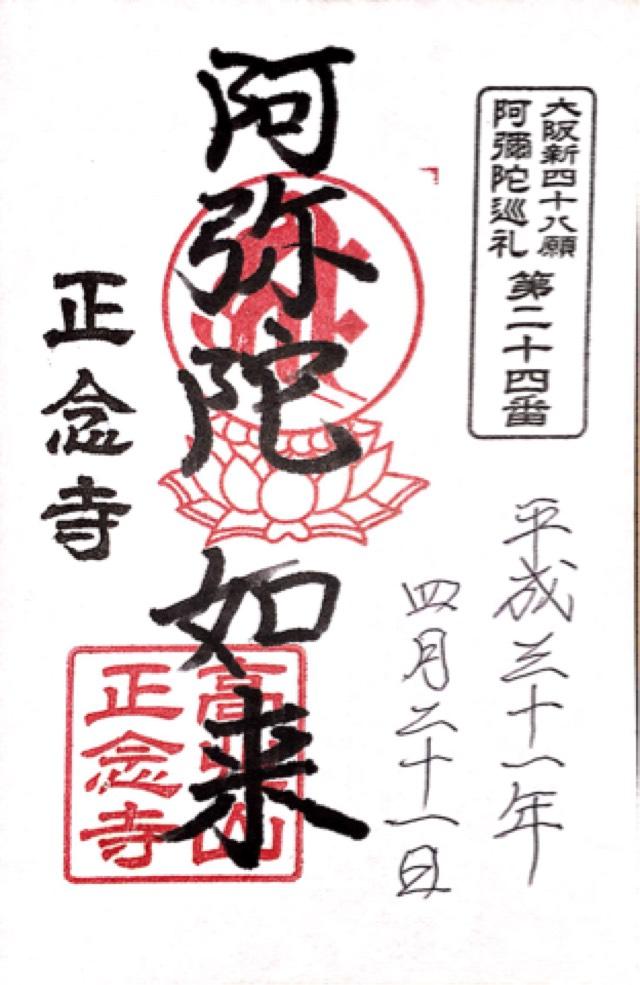 大阪新四十八願
阿彌陀巡礼 第二十四番
平成三十一年
四月二十一日
阿弥陀如来
正念寺
正念寺